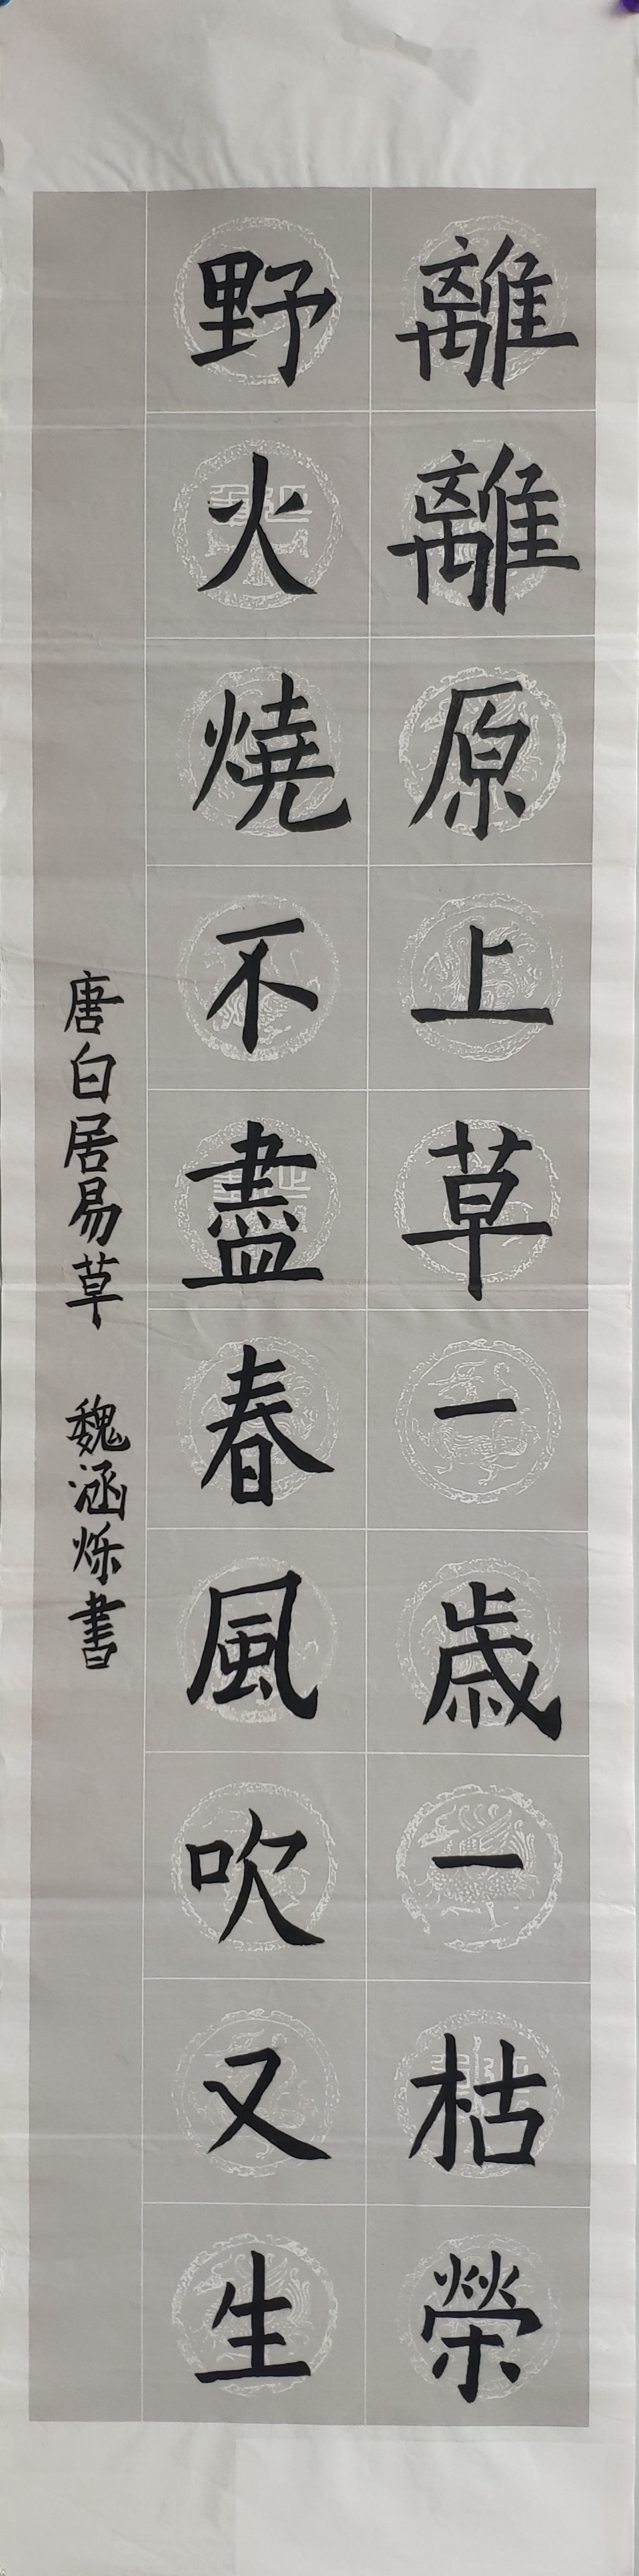 離離原上草一歳一枯榮
野火燒不盡春風吹又生
唐白居易草 魏涵烁書